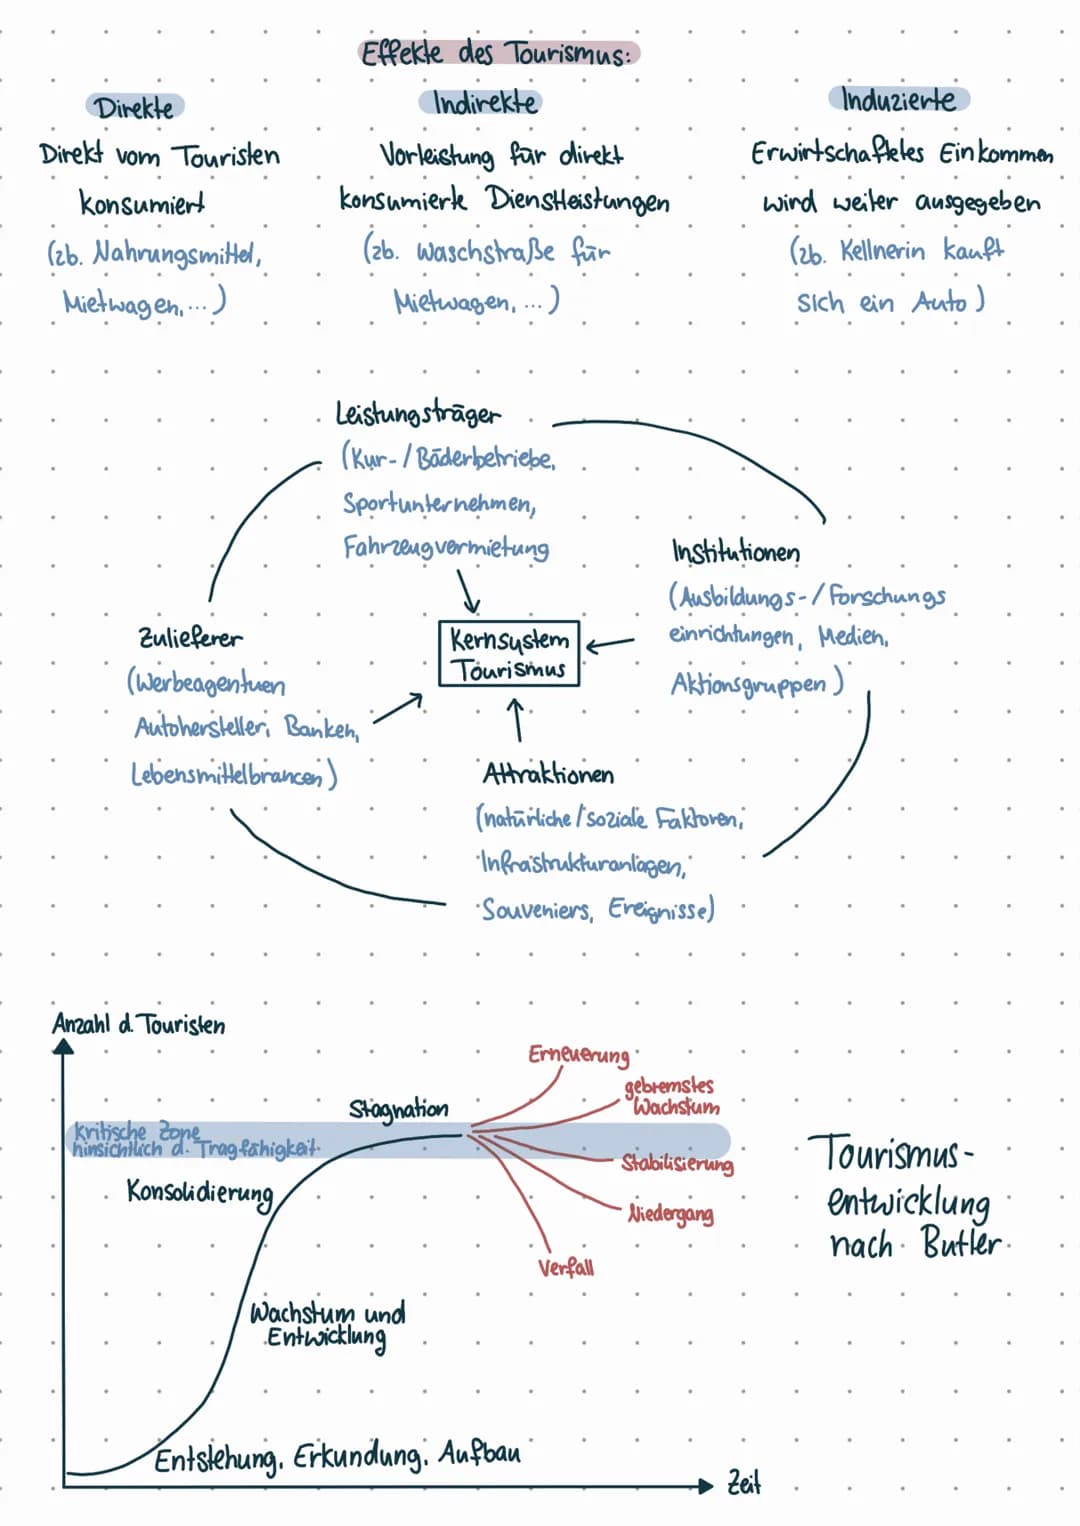 Effekte des Tourismus:
Direkte
Direkt vom Touristen
konsumiert
(zb. Nahrungsmittel,
Mietwagen, ...)
Indirekte
Vorleistung für direkt
konsumierte Dienstleistungen
(zb. Waschstraße für
Mietwagen, ...)
Induzierte
Erwirtschaftetes Einkommen
wird weiter ausgegeben
(zb. Kellnerin kauft
sich ein Auto)
Leistungsträger
(Kur-/Bäderbetriebe,
Sportunternehmen,
Fahrzeugvermietung
Institutionen
(Ausbildungs-/Forschungs
einrichtungen, Medien,
Aktionsgruppen)
Zulieferer
(Werbeagentuen
Autohersteller, Banken,
Lebensmittelbrancen)
Kernsystem
Tourismus
Attraktionen
(natürliche/soziale Faktoren,
Infrastrukturanlagen,
Souveniers, Ereignisse)
Anzahl d. Touristen
Erneuerung
gebremstes
Wachstum
Stagnation
kritische Zone
hinsichtlich d. Tragfähigkeit
Stabilisierung
Konsolidierung
Niedergang
Verfall
Wachstum und
Entwicklung
Entstehung, Erkundung, Aufbau
Zeit
Tourismus-
entwicklung
nach Butler